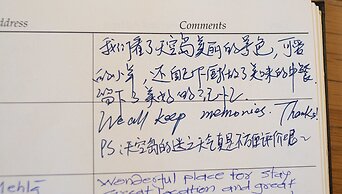 ddress
Comments
我们看了天空岛美丽的景色，可爱
的小羊，还自己下厨做了美味的中餐，
留下了美好的记忆
We all keep memories. Thanks!
PS:天空岛的迷之天气真是不方便评价呢~
Mehta
Wonderful place for stay
great location and great